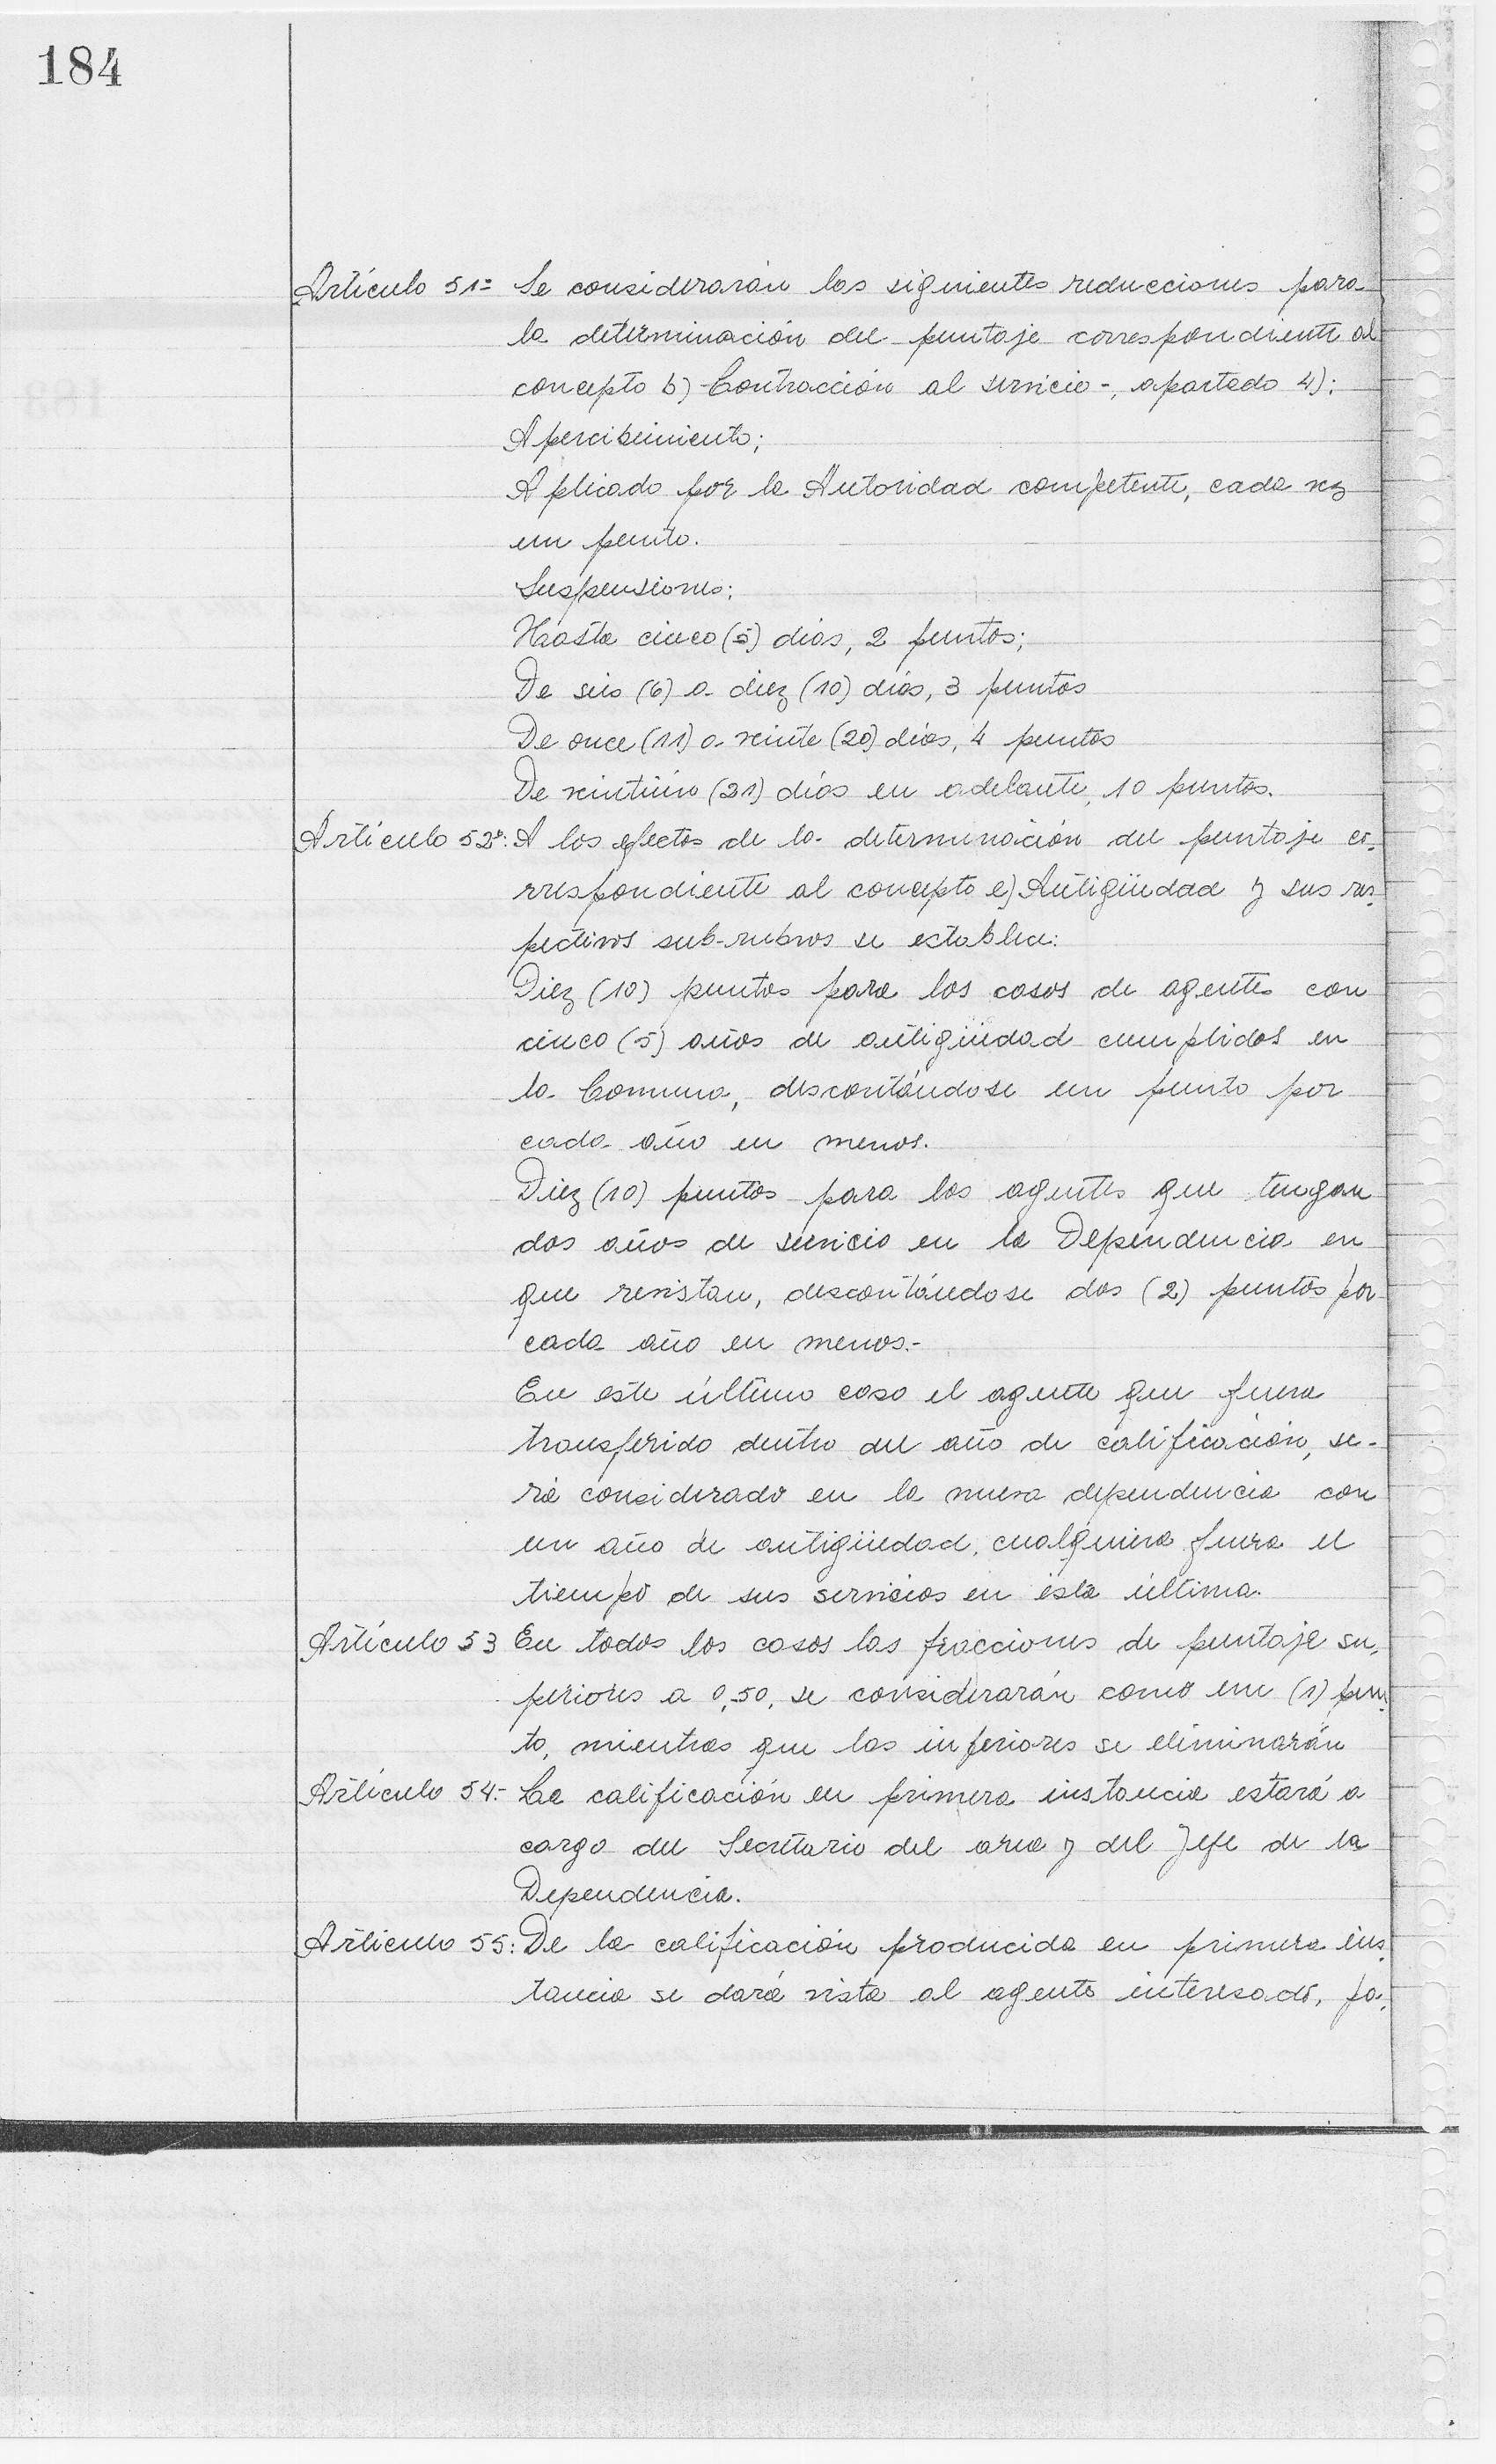 184
Artículo 51= Se considerarán las siguientes reducciones para
la determinación del puntaje correspondiente al
concepto b) - Contracción al servicio -, apartado 4):
Apercibimiento;
Aplicado por la Autoridad competente, cada vez
un punto.
Suspensiones:
Hasta cinco (5) días, 2 puntos;
De seis (6) a diez (10) días, 3 puntos
De once (11) a veinte (20) días, 4 puntos
De veintiún (21) días en adelante, 10 puntos.
Artículo 52º: A los efectos de la determinación del puntaje co-
rrespondiente al concepto e) Antigüedad y sus res-
pectivos sub-rubros se establece:
Diez (10) puntos para los casos de agentes con
cinco (5) años de antigüedad cumplidos en
la Comuna, descontándose un punto por
cada año en menos.
Diez (10) puntos para los agentes que tengan
dos años de servicio en la Dependencia en
que revistan, descontándose dos (2) puntos por
cada año en menos.-
En este último caso el agente que fuera
transferido dentro del año de calificación, se-
rá considerado en la nueva dependencia con
un año de antigüedad, cualquiera fuera el
tiempo de sus servicios en ésta última.
Artículo 53 En todos los casos las fracciones de puntaje su-
periores a 0,50, se considerarán como un (1) pun-
to, mientras que las inferiores se eliminarán
Artículo 54.- La calificación en primera instancia estará a
cargo del Secretario del area y del Jefe de la
Dependencia.
Artículo 55: De la calificación producida en primera ins-
tancia se dará vista al agente interesado, pa-